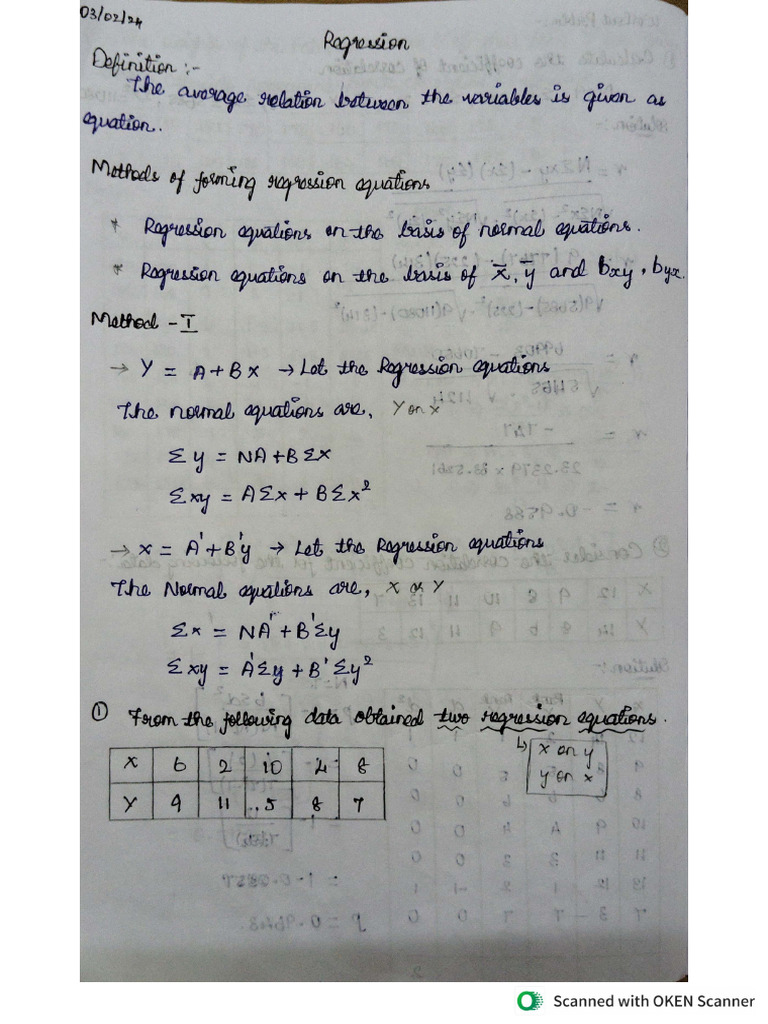 03/02/24
Regression
Definition :-
The average relation between the variables is given as
equation.
Methods of forming regression equations
* Regression equations on the basis of normal equations.
* Regression equations on the basis of x̅, y̅ and bxy, byx.
Method - I
→ Y = A + B x → Let the Regression equations
The normal equations are, Y on x
Σ y = NA + B Σx
Σ xy = A Σx + B Σx²
→ x = A' + B'y → Let the Regression equations
The Normal equations are, X on Y
Σx = NA' + B'Σy
Σ xy = A'Σy + B' Σy²
① From the following data obtained two regression equations.
↳ x on y
y on x
X 6 2 10 4 8
Y 9 11 5 8 7
Scanned with OKEN Scanner